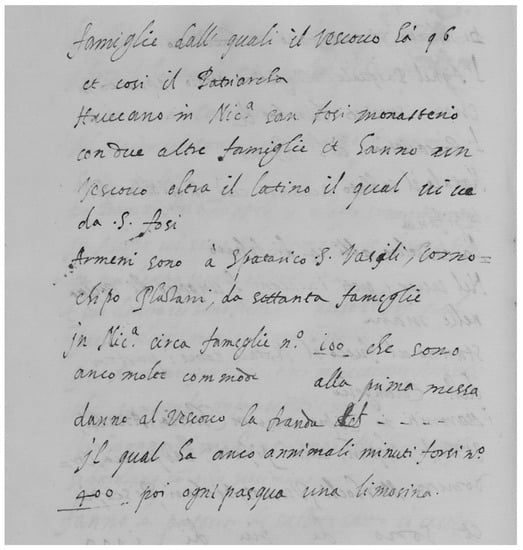 famiglie dall' quali il Vescovo hà 96
et cosi il Patriarcha
Haveano in Nic.ª san fosi monasterio
con due altre famiglie et hanno un
Vescovo oltra il latino il qual vive
da .S. fosi
Armeni sono à Spatarico S. Vasili, Corno=
chipo Platani, da settanta fameglie
jn Nic.ª circa fameglie n.º 100 che sono
anco molte commode alla prima messa
danno al Vescovo la
jl qual ha anco annimali minuti forsi n.º
400 poi ogni pasqua una limosina.